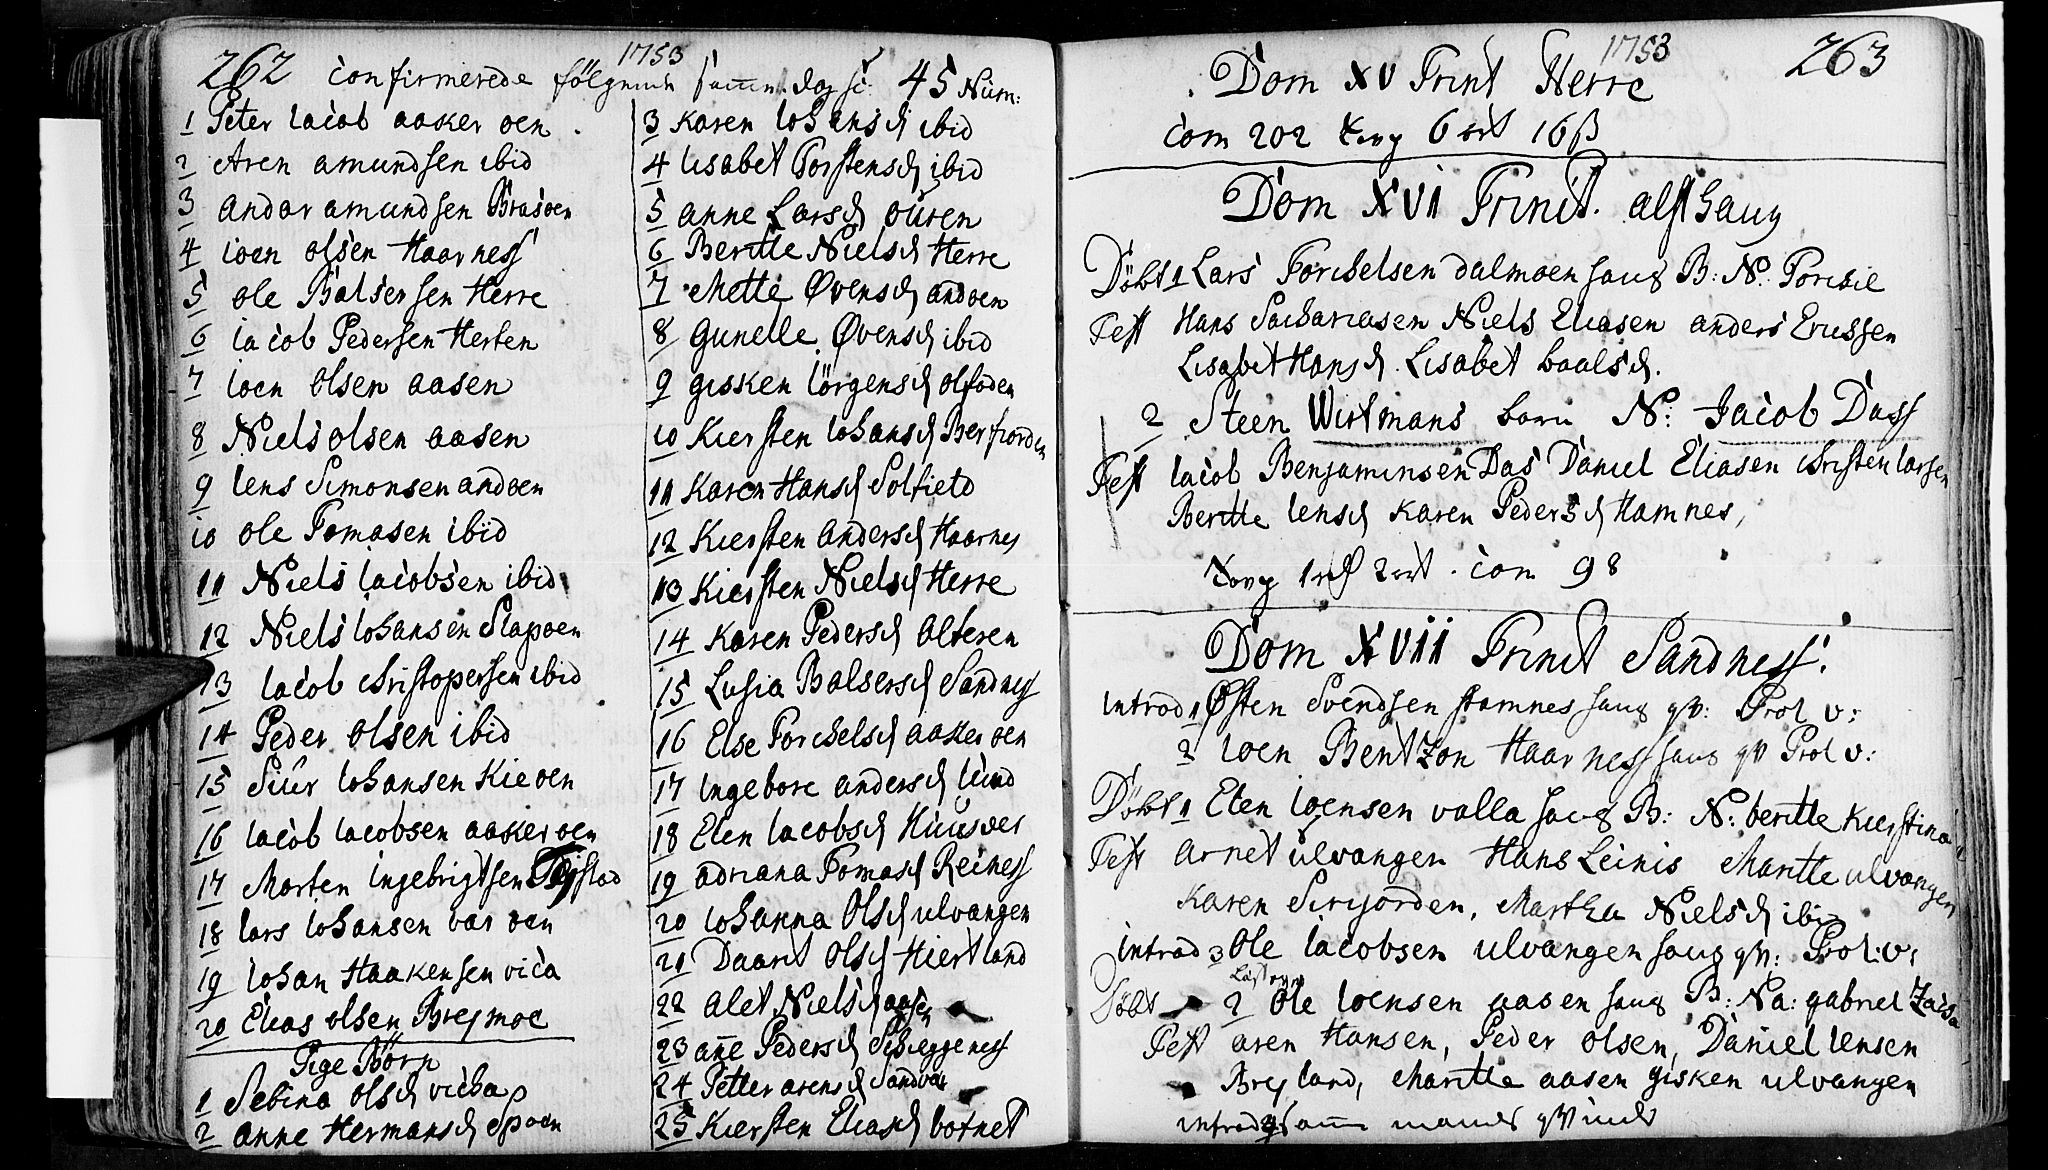 262
1753
confirmerede følgende samme dag sc: 45 Num:
1 Peter Iacob aaker oen
2 Aren amundsen ibid
3 Andar amundsen Brasøen
4 ioen olsen Haarness
5 ole Balsersen Herre
6 iacob Pedersen Herten
7 ioen olsen aasen
8 Niels olsen aasen
9 Iens Simonsen andoen
10 ole Tomasen ibid
11 Niels Iacobsen ibid
12 Niels Iohansen Slapoen
13 Iacob Christopersen ibid
14 Peder olsen ibid
15 Siur Iohansen Kieoen
16 Iacob Iacobsen aaker oen
17 Morten Ingebrigtsen
18 Lars Iohansen var oen
19 Iohan Haakensen vica
20 Elias olsen Breymoe
Pige Børn
1 Sebina olsd
2 anne Hermansd
3 Karen Iohansd ibid
4 Lisabet Torstensd ibid
5 anne Larsd ouren
6 Beritte Nielsd Herre
7 Mette Øvensd andoen
8 Gunelle Øvensd ibid
9 gisken Iörgensd olfoden
10 Kiersten Iohansd Berfiorden
11 Karen Hansd Solfield
12 Kiersten andersd Haarnes
13 Kiersten Nielsd Herre
14 Karen Pedersd alteren
15 Lusia Balsersd Sandness
16 Else Torchelsd aaker oen
17 Ingebore andersd lund
18 Elen Iacobsd Huusvær
19 adriana Tomasd Reiness
20 Iohanna Olsd ulvangen
21 Daarit Olsd Hiertland
22 alet Nielsd aasen
23 añe Pedersd
24 Petter arensd Sandvær
25 Kiersten Eliasd botnet
1753
263
Dom XV Trint Herre
com 202 6 ort 16 β
Dom XVII Trinit. alsthaug
Döbt 1 Lars Torchelsen dalmoen hans B: N: Torchil
Test Hans Sachariasen Niels Eliasen anders Ericssen
Lisabet Hansd. Lisabet Paalsd.
2 Steen Wirtmans barn N: Jacob Dass
Test Iacob Benjaminsen Das Daniel Eliasen Christen larsen
Beritte Iensd Karen Pedersd Hamnes,
1 rd 2 ort. com 98
Dom XVII Trinit Sandness.
Introd 1 Østen Svendsen Stamnes hans qv: Prol v:
2 Ioen Bentzon Haarness hans qv Prol v:
Döbt 1 Elen Ioensen valla hans B: N: beritte Kierstina
Test Arnet ulvangen Hans Leinis Maritte ulvangen
Karen Sirijorden, Martha Nielsd ibid
introd 3 Ole Iacobsen ulvangen hans qv: Prol: v:
Döbt 2 Ole Ioensen aasen hans B: Na: gabriel
Test aren Hansen, Peder olsen, Daniel Iensen
Breyland, Maritte aasen gisken ulvangen